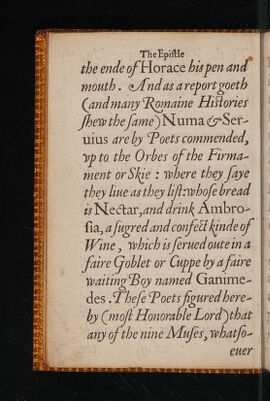 The Epistle
the ende of Horace his pen and
mouth. And as a report goeth
(and many Romaine Histories
shew the same) Numa & Ser-
uius are by Poets commended,
vp to the Orbes of the Firma-
ment or Skie: where they saye
they liue as they list: whose bread
is Nectar, and drink Ambro-
sia, a sugred and confect kinde of
Wine, which is serued oute in a
faire Goblet or Cuppe by a faire
waiting Boy named Ganime-
des. These Poets figured here-
by (most Honorable Lord) that
any of the nine Muses, whatso-
euer